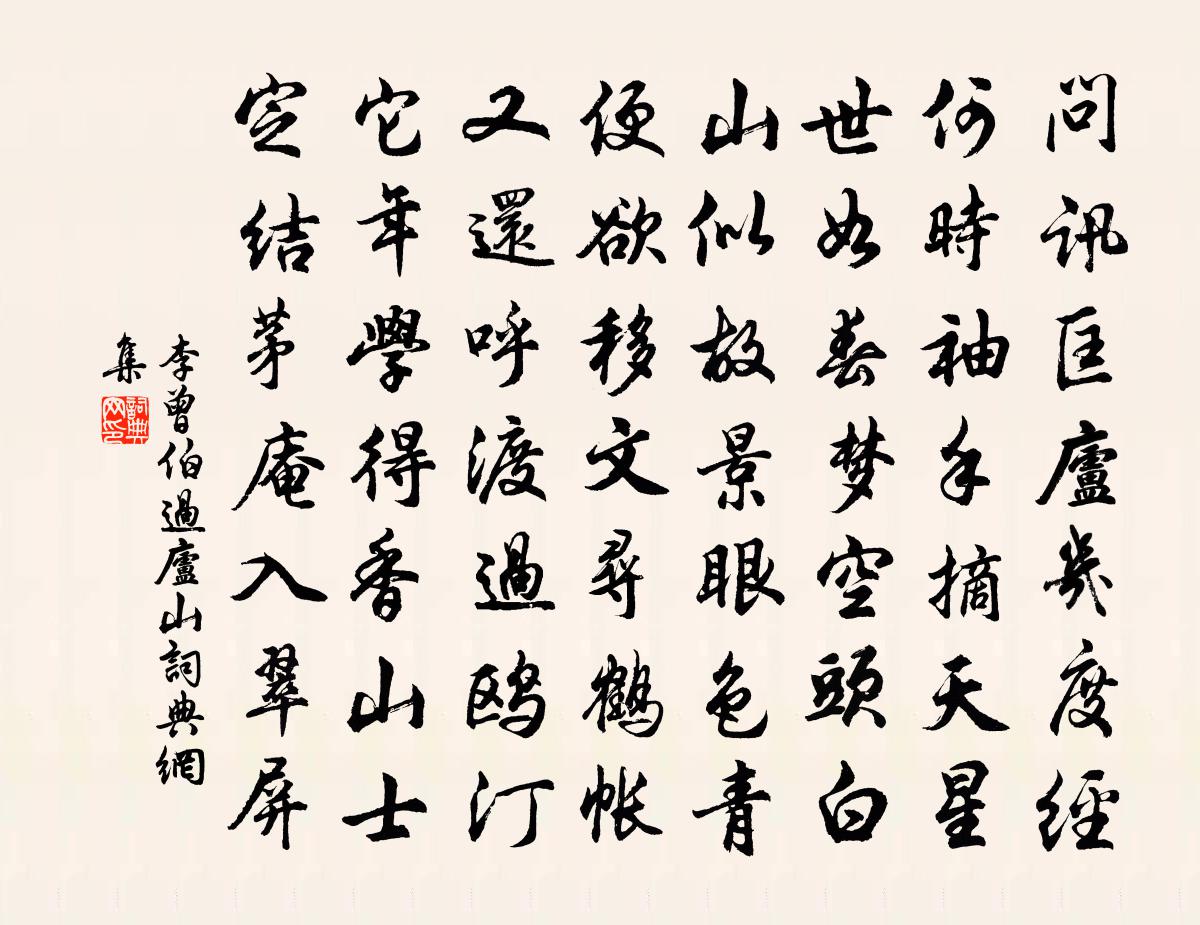 問訊匡廬幾度經
何時袖手摘天星
世如春夢空頭白
山似故景眼色青
便欲移文尋鶴帳
又還呼渡過鷗汀
它年學得香山士
定結茅庵入翠屏
李曾伯過廬山詞典網
集
詞典
网印